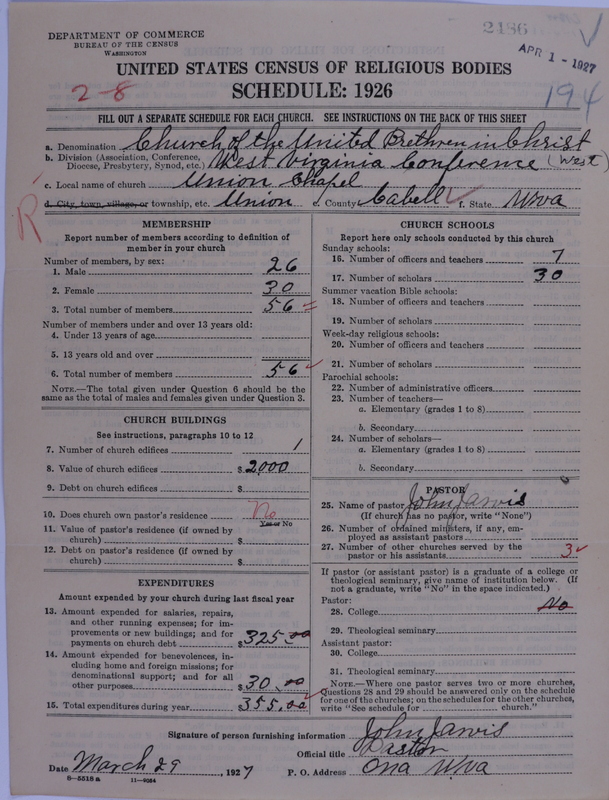 2186
APR 1 - 1927
194
2-8
R
DEPARTMENT OF COMMERCE
BUREAU OF THE CENSUS
WASHINGTON
UNITED STATES CENSUS OF RELIGIOUS BODIES
SCHEDULE: 1926
FILL OUT A SEPARATE SCHEDULE FOR EACH CHURCH. SEE INSTRUCTIONS ON THE BACK OF THIS SHEET
a. Denomination Church of the United Brethren in Christ
b. Division (Association, Conference, Diocese, Presbytery, Synod, etc.) West Virginia Conference (West)
c. Local name of church Union Chapel
d. City, town, village, or township, etc. Union e. County Cabell f. State Wva
MEMBERSHIP
Report number of members according to definition of
member in your church
Number of members, by sex:
1. Male 26
2. Female 30
3. Total number of members 56
Number of members under and over 13 years old:
4. Under 13 years of age
5. 13 years old and over
6. Total number of members 56
NOTE.—The total given under Question 6 should be the
same as the total of males and females given under Question 3.
CHURCH BUILDINGS
See instructions, paragraphs 10 to 12
7. Number of church edifices 1
8. Value of church edifices $ 2000
9. Debt on church edifices $
10. Does church own pastor's residence No
Yes or No
11. Value of pastor's residence (if owned by
church) $
12. Debt on pastor's residence (if owned by
church) $
EXPENDITURES
Amount expended by your church during last fiscal year
13. Amount expended for salaries, repairs,
and other running expenses; for im-
provements or new buildings; and for
payments on church debt $ 325.00
14. Amount expended for benevolences, in-
cluding home and foreign missions; for
denominational support; and for all
other purposes $ 30.00
15. Total expenditures during year $ 355.00
CHURCH SCHOOLS
Report here only schools conducted by this church
Sunday schools:
16. Number of officers and teachers 7
17. Number of scholars 30
Summer vacation Bible schools:
18. Number of officers and teachers
19. Number of scholars
Week-day religious schools:
20. Number of officers and teachers
21. Number of scholars
Parochial schools:
22. Number of administrative officers
23. Number of teachers—
a. Elementary (grades 1 to 8)
b. Secondary
24. Number of scholars—
a. Elementary (grades 1 to 8)
b. Secondary
PASTOR
25. Name of pastor John Jarvis
(If church has no pastor, write "None")
26. Number of ordained ministers, if any, em-
ployed as assistant pastors
27. Number of other churches served by the
pastor or his assistants 3
If pastor (or assistant pastor) is a graduate of a college or
theological seminary, give name of institution below. (If
not a graduate, write "No" in the space indicated.)
Pastor:
28. College No
29. Theological seminary
Assistant pastor:
30. College
31. Theological seminary
NOTE.—Where one pastor serves two or more churches,
Questions 28 and 29 should be answered only on the schedule
for one of the churches; on the schedules for the other churches,
write "See schedule for ........ church."
Signature of person furnishing information John Jarvis
Official title Pastor
Date March 29, 1927 P. O. Address Ona Wva
8-5518 a 11-9054